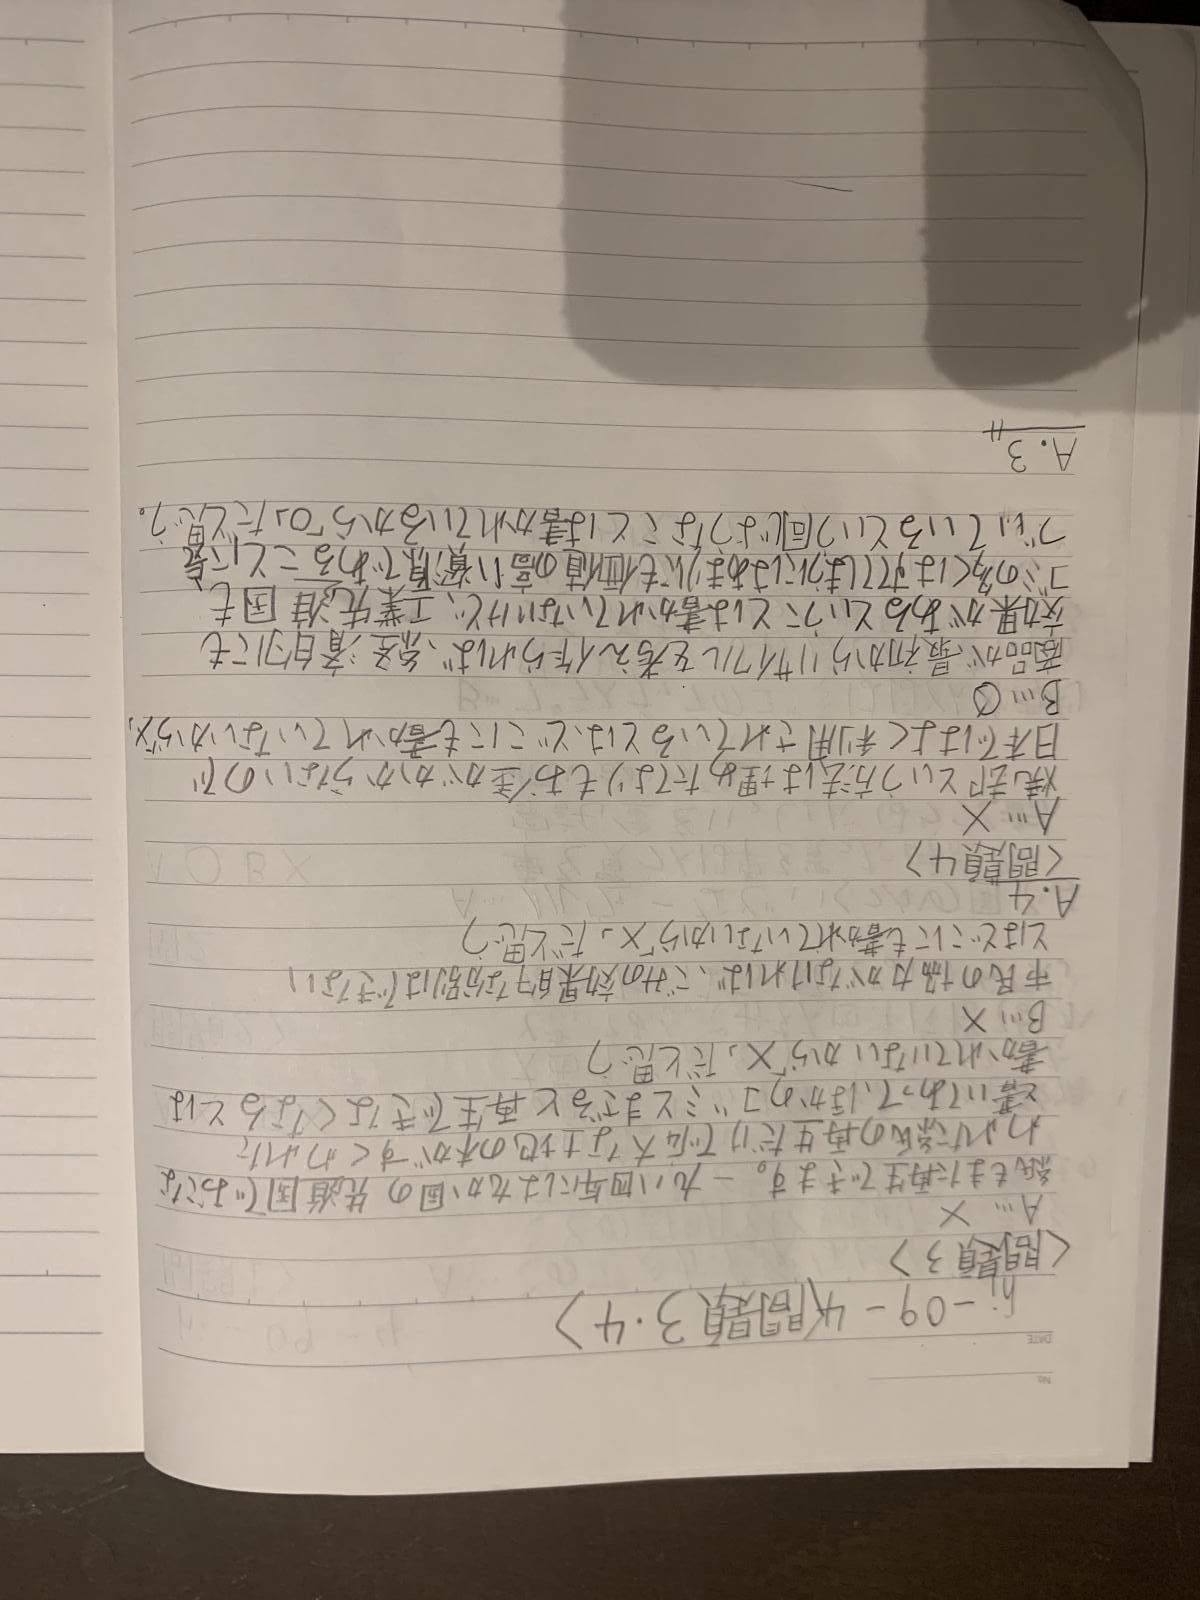 No.
DATE
hi-09-4〈問題3・4〉
〈問題3〉
A… ×
紙もまた再生できます。一九八四年には九か国の先進国でおこな
われた紙の再生だけで広大な土地の木がすくわれた
と書いてあって、ほかのゴミとまざると再生できなくなるとは
書かれていないから「×」だと思う
B… ×
市民の協力がなければ、ごみの効果的な分別はできない
とはどこにも書かれていないから「×」だと思う
A.4
〈問題4〉
A… ×
焼却という方法は埋めたてよりもお金がかからないので
日本ではよく利用されているとは、どこにも書かれていないから「×」
B… ○
商品が最初からリサイクルを考え作られれば、経済的にも
効果があるということは書かれていないけど、工業先進国も
ゴミの多くはすてしまうにはあまりにも価値の高い資源であることに気
づいているという同じようなことは書かれているから「○」だと思う。
A.3